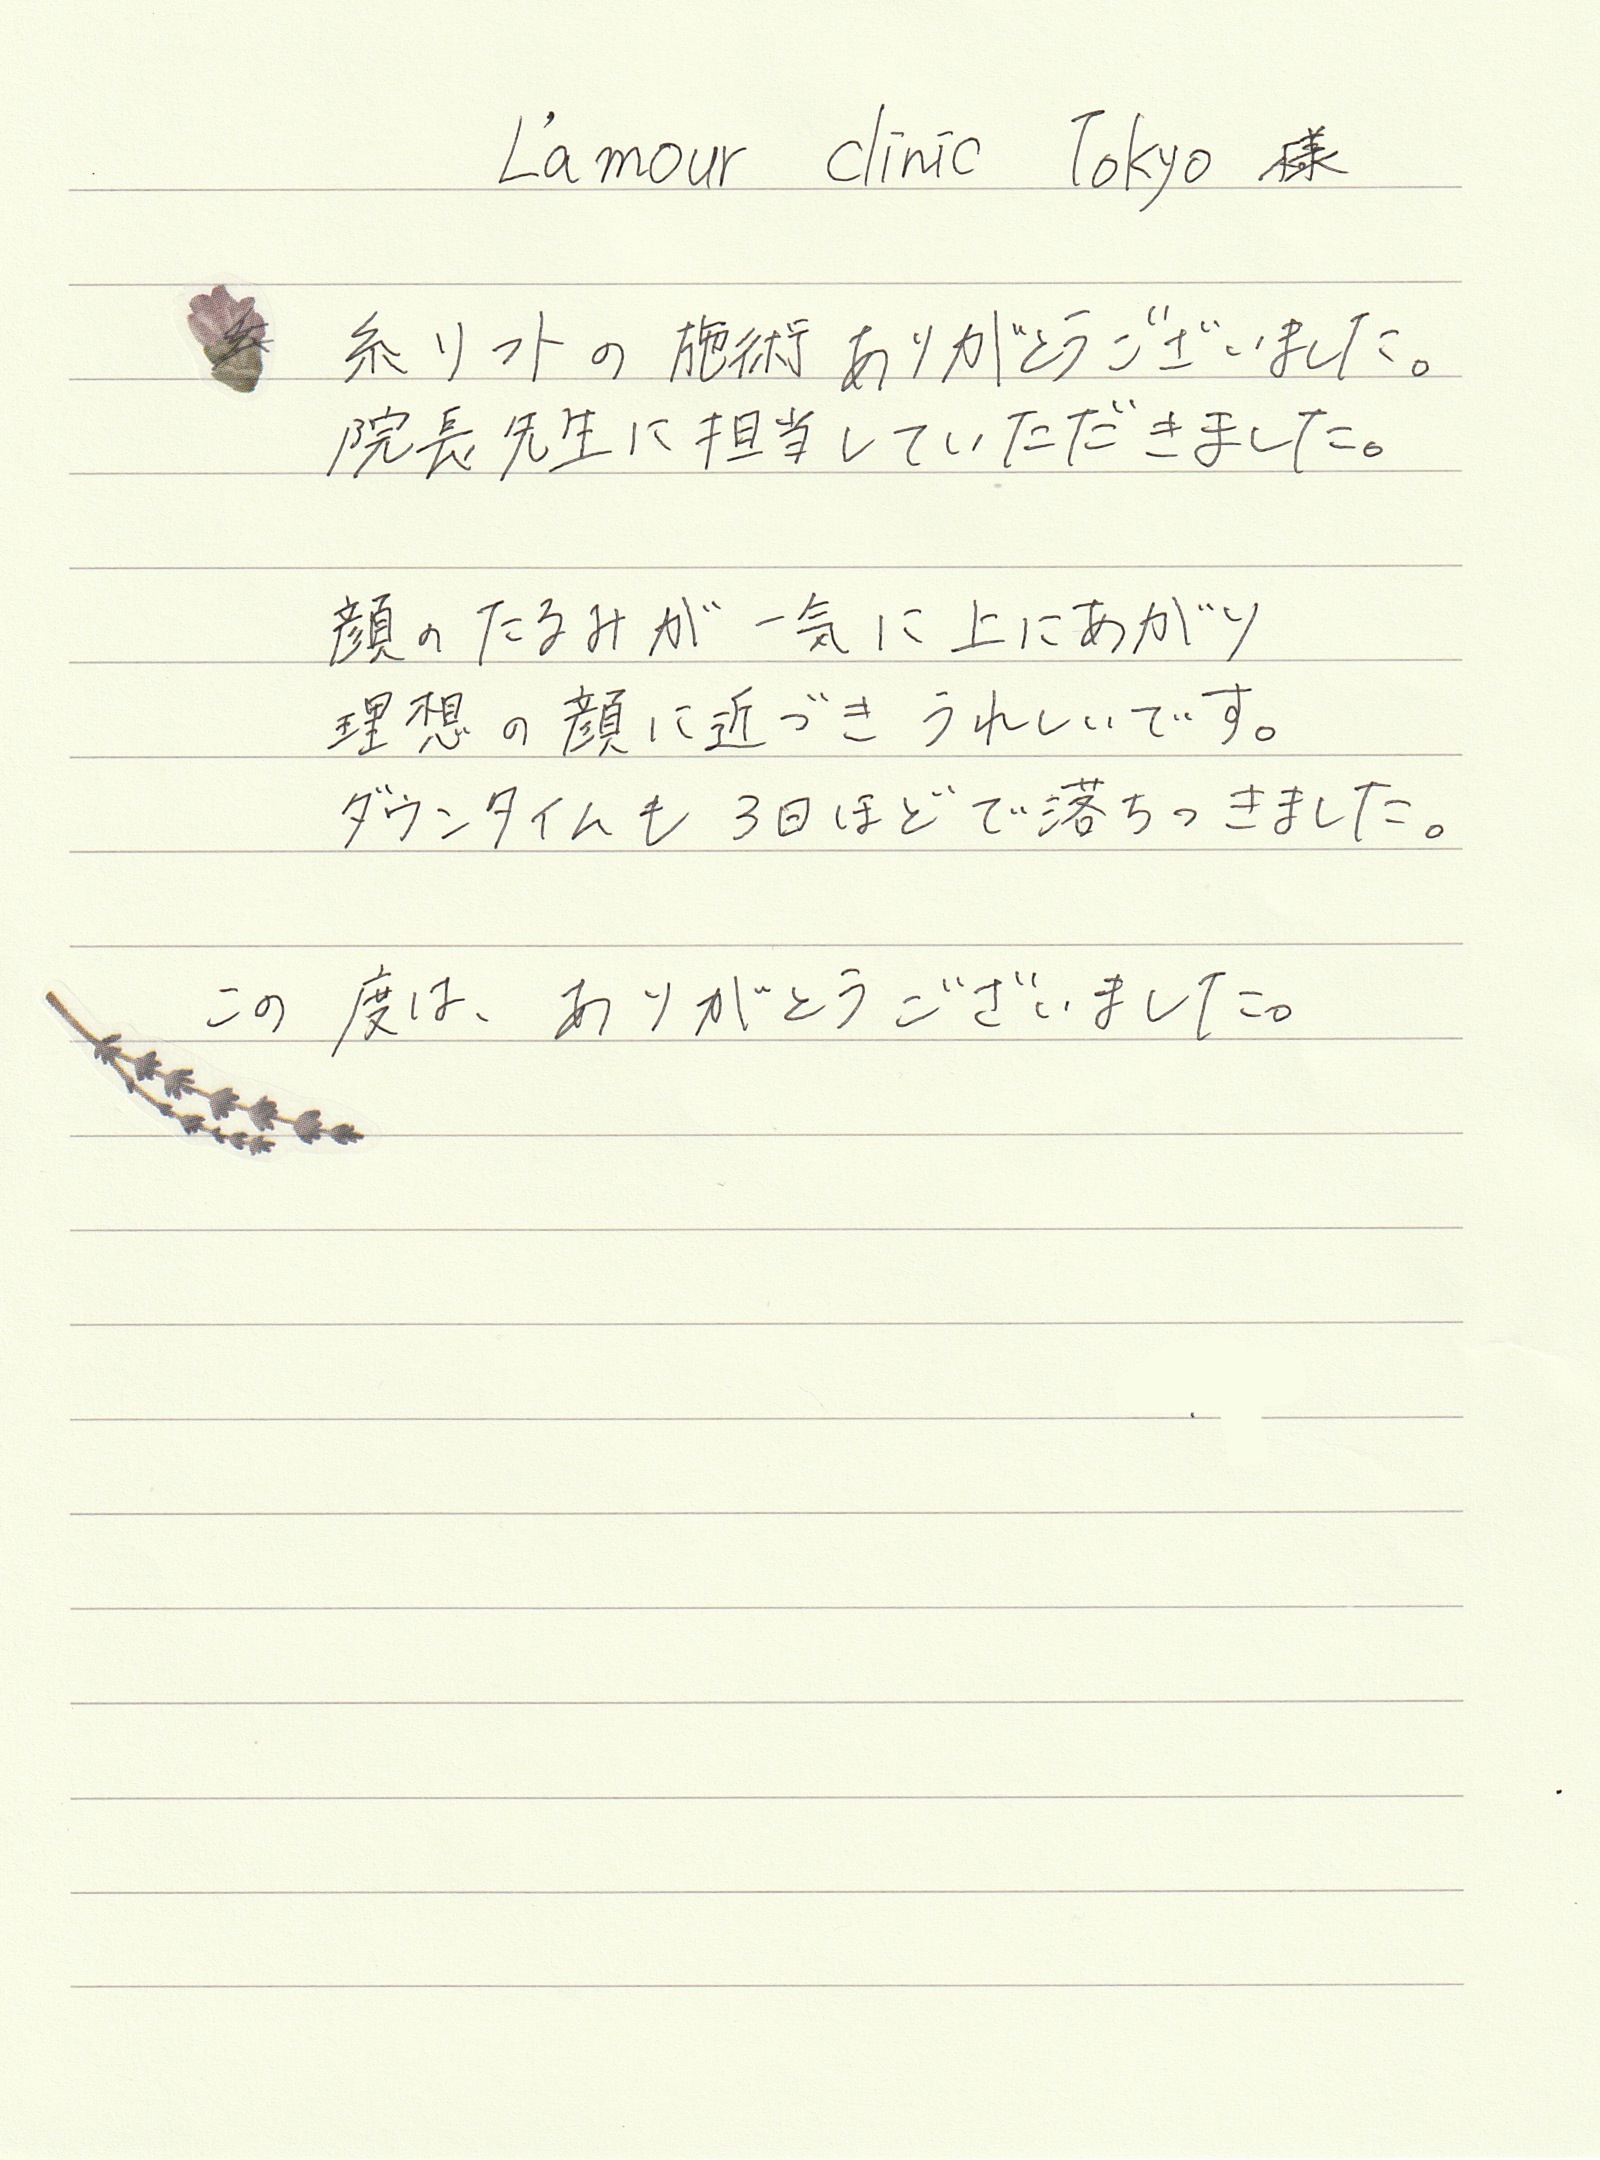 L'amour clinic Tokyo 様
糸リフトの施術ありがとうございました。
院長先生に担当していただきました。
顔のたるみが一気に上にあがり
理想の顔に近づきうれしいです。
ダウンタイムも3日ほどで落ちつきました。
この度は、ありがとうございました。